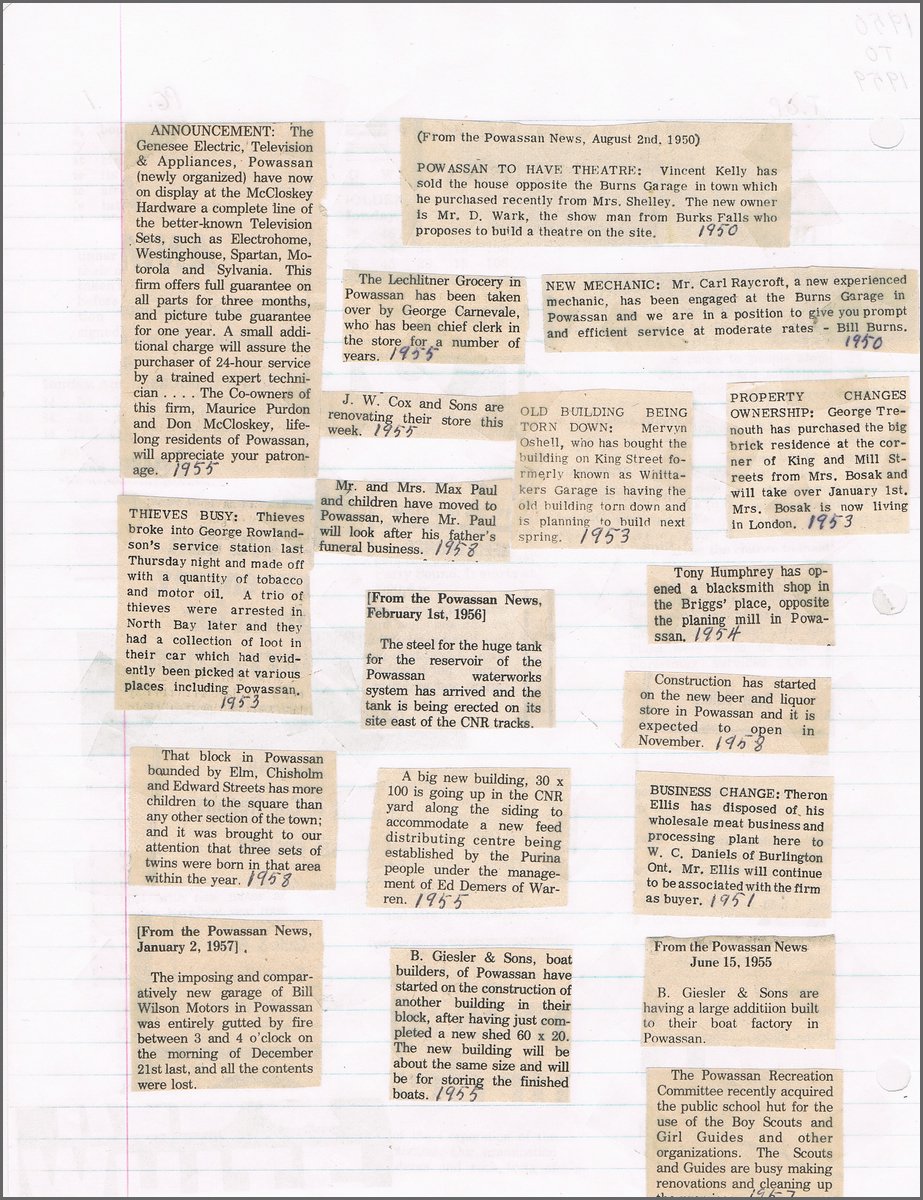 1950
TO
1959
ANNOUNCEMENT: The
Genesee Electric, Television
& Appliances, Powassan
(newly organized) have now
on display at the McCloskey
Hardware a complete line of
the better-known Television
Sets, such as Electrohome,
Westinghouse, Spartan, Mo-
torola and Sylvania. This
firm offers full guarantee on
all parts for three months,
and picture tube guarantee
for one year. A small addi-
tional charge will assure the
purchaser of 24-hour service
by a trained expert techni-
cian . . . . The Co-owners of
this firm, Maurice Purdon
and Don McCloskey, life-
long residents of Powassan,
will appreciate your patron-
age. 1955
(From the Powassan News, August 2nd, 1950)
POWASSAN TO HAVE THEATRE: Vincent Kelly has
sold the house opposite the Burns Garage in town which
he purchased recently from Mrs. Shelley. The new owner
is Mr. D. Wark, the show man from Burks Falls who
proposes to build a theatre on the site. 1950
The Lechlitner Grocery in
Powassan has been taken
over by George Carnevale,
who has been chief clerk in
the store for a number of
years. 1955
NEW MECHANIC: Mr. Carl Raycroft, a new experienced
mechanic, has been engaged at the Burns Garage in
Powassan and we are in a position to give you prompt
and efficient service at moderate rates - Bill Burns.
1950
J. W. Cox and Sons are
renovating their store this
week. 1955
OLD BUILDING BEING
TORN DOWN: Mervyn
Oshell, who has bought the
building on King Street fo-
rmerly known as Whitta-
kers Garage is having the
old building torn down and
is planning to build next
spring. 1953
PROPERTY CHANGES
OWNERSHIP: George Tre-
nouth has purchased the big
brick residence at the cor-
ner of King and Mill St-
reets from Mrs. Bosak and
will take over January 1st.
Mrs. Bosak is now living
in London. 1953
Mr. and Mrs. Max Paul
and children have moved to
Powassan, where Mr. Paul
will look after his father's
funeral business. 1958
THIEVES BUSY: Thieves
broke into George Rowland-
son's service station last
Thursday night and made off
with a quantity of tobacco
and motor oil. A trio of
thieves were arrested in
North Bay later and they
had a collection of loot in
their car which had evid-
ently been picked at various
places including Powassan.
1953
[From the Powassan News,
February 1st, 1956]
The steel for the huge tank
for the reservoir of the
Powassan waterworks
system has arrived and the
tank is being erected on its
site east of the CNR tracks.
Tony Humphrey has op-
ened a blacksmith shop in
the Briggs' place, opposite
the planing mill in Powa-
ssan. 1954
Construction has started
on the new beer and liquor
store in Powassan and it is
expected to open in
November. 1958
That block in Powassan
bounded by Elm, Chisholm
and Edward Streets has more
children to the square than
any other section of the town;
and it was brought to our
attention that three sets of
twins were born in that area
within the year. 1958
A big new building, 30 x
100 is going up in the CNR
yard along the siding to
accommodate a new feed
distributing centre being
established by the Purina
people under the manage-
ment of Ed Demers of War-
ren. 1955
BUSINESS CHANGE: Theron
Ellis has disposed of his
wholesale meat business and
processing plant here to
W. C. Daniels of Burlington
Ont. Mr. Ellis will continue
to be associated with the firm
as buyer. 1951
[From the Powassan News,
January 2, 1957] .
The imposing and compar-
atively new garage of Bill
Wilson Motors in Powassan
was entirely gutted by fire
between 3 and 4 o'clock on
the morning of December
21st last, and all the contents
were lost.
B. Giesler & Sons, boat
builders, of Powassan have
started on the construction of
another building in their
block, after having just com-
pleted a new shed 60 x 20.
The new building will be
about the same size and will
be for storing the finished
boats. 1955
From the Powassan News
June 15, 1955
B. Giesler & Sons are
having a large addition built
to their boat factory in
Powassan.
The Powassan Recreation
Committee recently acquired
the public school hut for the
use of the Boy Scouts and
Girl Guides and other
organizations. The Scouts
and Guides are busy making
renovations and cleaning up
1957